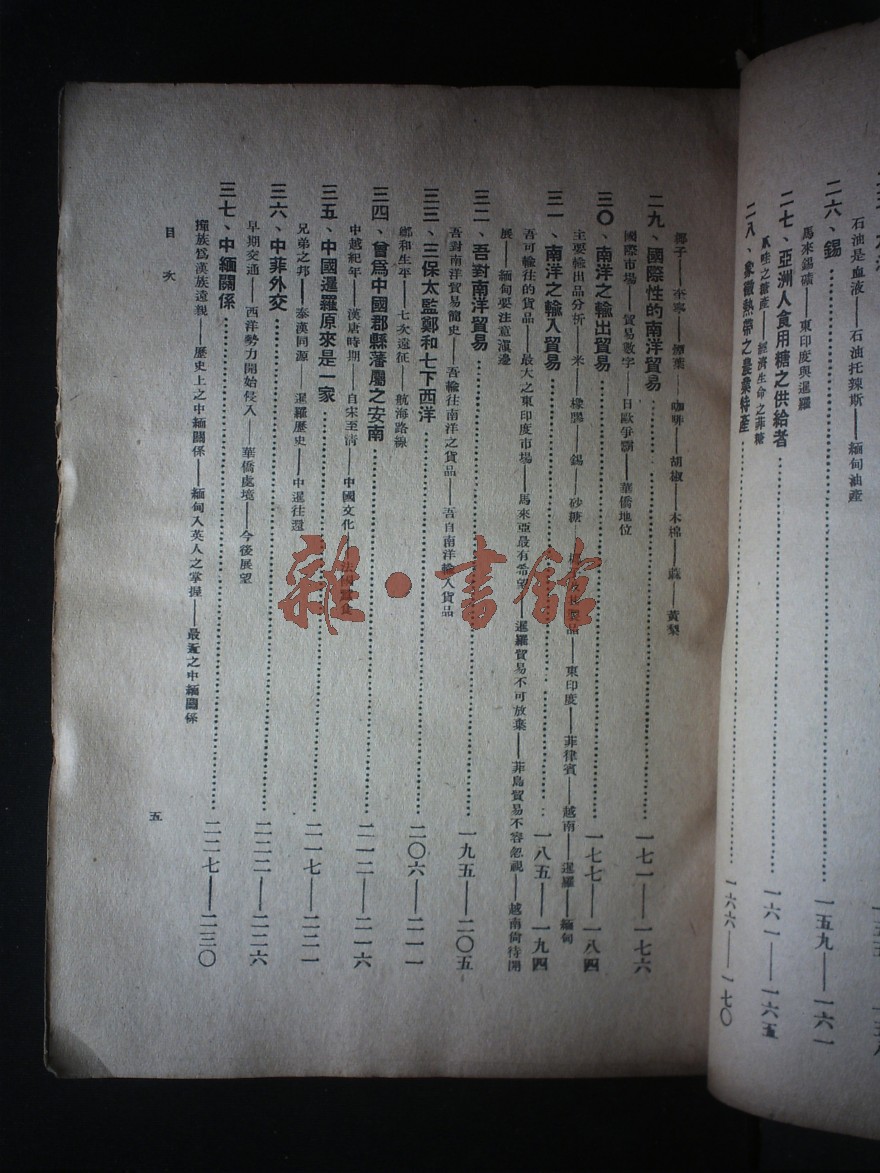 石油是血液——石油托辣斯——緬甸油產
二六、錫……一五九——一六一
馬來錫礦——東印度與暹羅
二七、亞洲人食用糖之供給者……一六一——一六五
爪哇之糖產——經濟生命之菲糖
二八、象徵熱帶之農業特產……一六六——一七〇
椰子——煙葉——咖啡——胡椒——木棉——蔴——黃梨
二九、國際性的南洋貿易……一七一——一七六
國際市場——貿易數字——日歐爭霸——華僑地位
三〇、南洋之輸出貿易……一七七——一八四
主要輸出品分析——米——橡膠——錫——砂糖——東印度——菲律賓——越南——暹羅——緬甸
三一、南洋之輸入貿易……一八五——一九四
吾可輸往的貨品——最大之東印度市場——馬來亞最有希望——暹羅貿易不可放棄——菲島貿易不容忽視——越南倘待開
展——緬甸要注意滇邊
三二、吾對南洋貿易……一九五——二〇五
吾對南洋貿易簡史——吾輸往南洋之貨品——吾自南洋輸入貨品
三三、三保太監鄭和七下西洋……二〇六——二一一
鄭和生平——七次遠征——航海路線
三四、曾爲中國郡縣藩屬之安南……二一二——二一六
中越紀年——漢唐時期——自宋至清——中國文化——法國蠶食
三五、中國暹羅原來是一家……二一七——二二一
兄弟之邦——泰漢同源——暹羅歷史——中暹往還
三六、中菲外交……二二二——二二六
早期交通——西洋勢力開始侵入——華僑處境——今後展望
三七、中緬關係……二二七——二三〇
撣族爲漢族遠親——歷史上之中緬關係——緬甸入英人之掌握——最近之中緬關係
目次
五
雜·書館